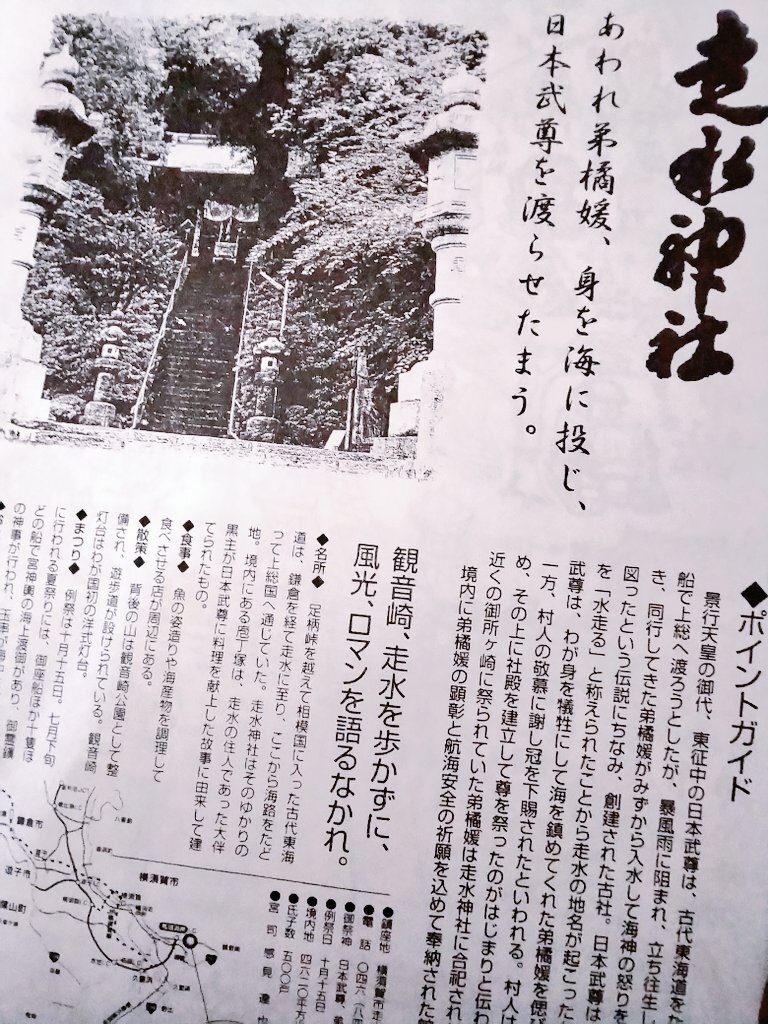 走水神社
あわれ弟橘媛、身を海に投じ、
日本武尊を渡らせたまう。
◆ポイントガイド
景行天皇の御代、東征中の日本武尊は、古代東海道をた
船で上総へ渡ろうとしたが、暴風雨に阻まれ、立ち往生し
き、同行してきた弟橘媛がみずから入水して海神の怒りを
図ったという伝説にちなみ、創建された古社。日本武尊は
を「水走る」と称えられたことから走水の地名が起こった
武尊は、わが身を犠牲にして海を鎮めてくれた弟橘媛を偲び
一方、村人の敬慕に謝し冠を下賜されたといわれる。村人は
め、その上に社殿を建立して尊を祭ったのがはじまりと伝わ
近くの御所ヶ崎に祭られていた弟橘媛は走水神社に合祀され
境内に弟橘媛の顕彰と航海安全の祈願を込めて奉納された
観音崎、走水を歩かずに、
風光、ロマンを語るなかれ。
◆名所◆ 足柄峠を越えて相模国に入った古代東海
道は、鎌倉を経て走水に至り、ここから海路をたど
って上総国へ通じていた。走水神社はそのゆかりの
地。境内にある庖丁塚は、走水の住人であった大伴
黒主が日本武尊に料理を献上した故事に由来して建
てられたもの。
◆食事◆ 魚の姿造りや海産物を調理して
食べさせる店が周辺にある。
◆散策◆ 背後の山は観音崎公園として整
備され、遊歩道が設けられている。観音崎
灯台はわが国初の洋式灯台。
◆まつり◆ 例祭は十月十五日。七月下旬
に行われる夏祭りには、御座船ほか十隻ほ
どの船で宮神輿の海上渡御があり、御霊鎮
の神事が行われ、玉串が海
●鎮座地 横須賀市走
●電話 〇四六（八四
●御祭神 日本武尊、弟
●例祭日 十月十五日
●境内地 四六二〇平方
●氏子数 五〇〇戸
●宮司
横須賀市
鎌倉市
逗子市
葉山町